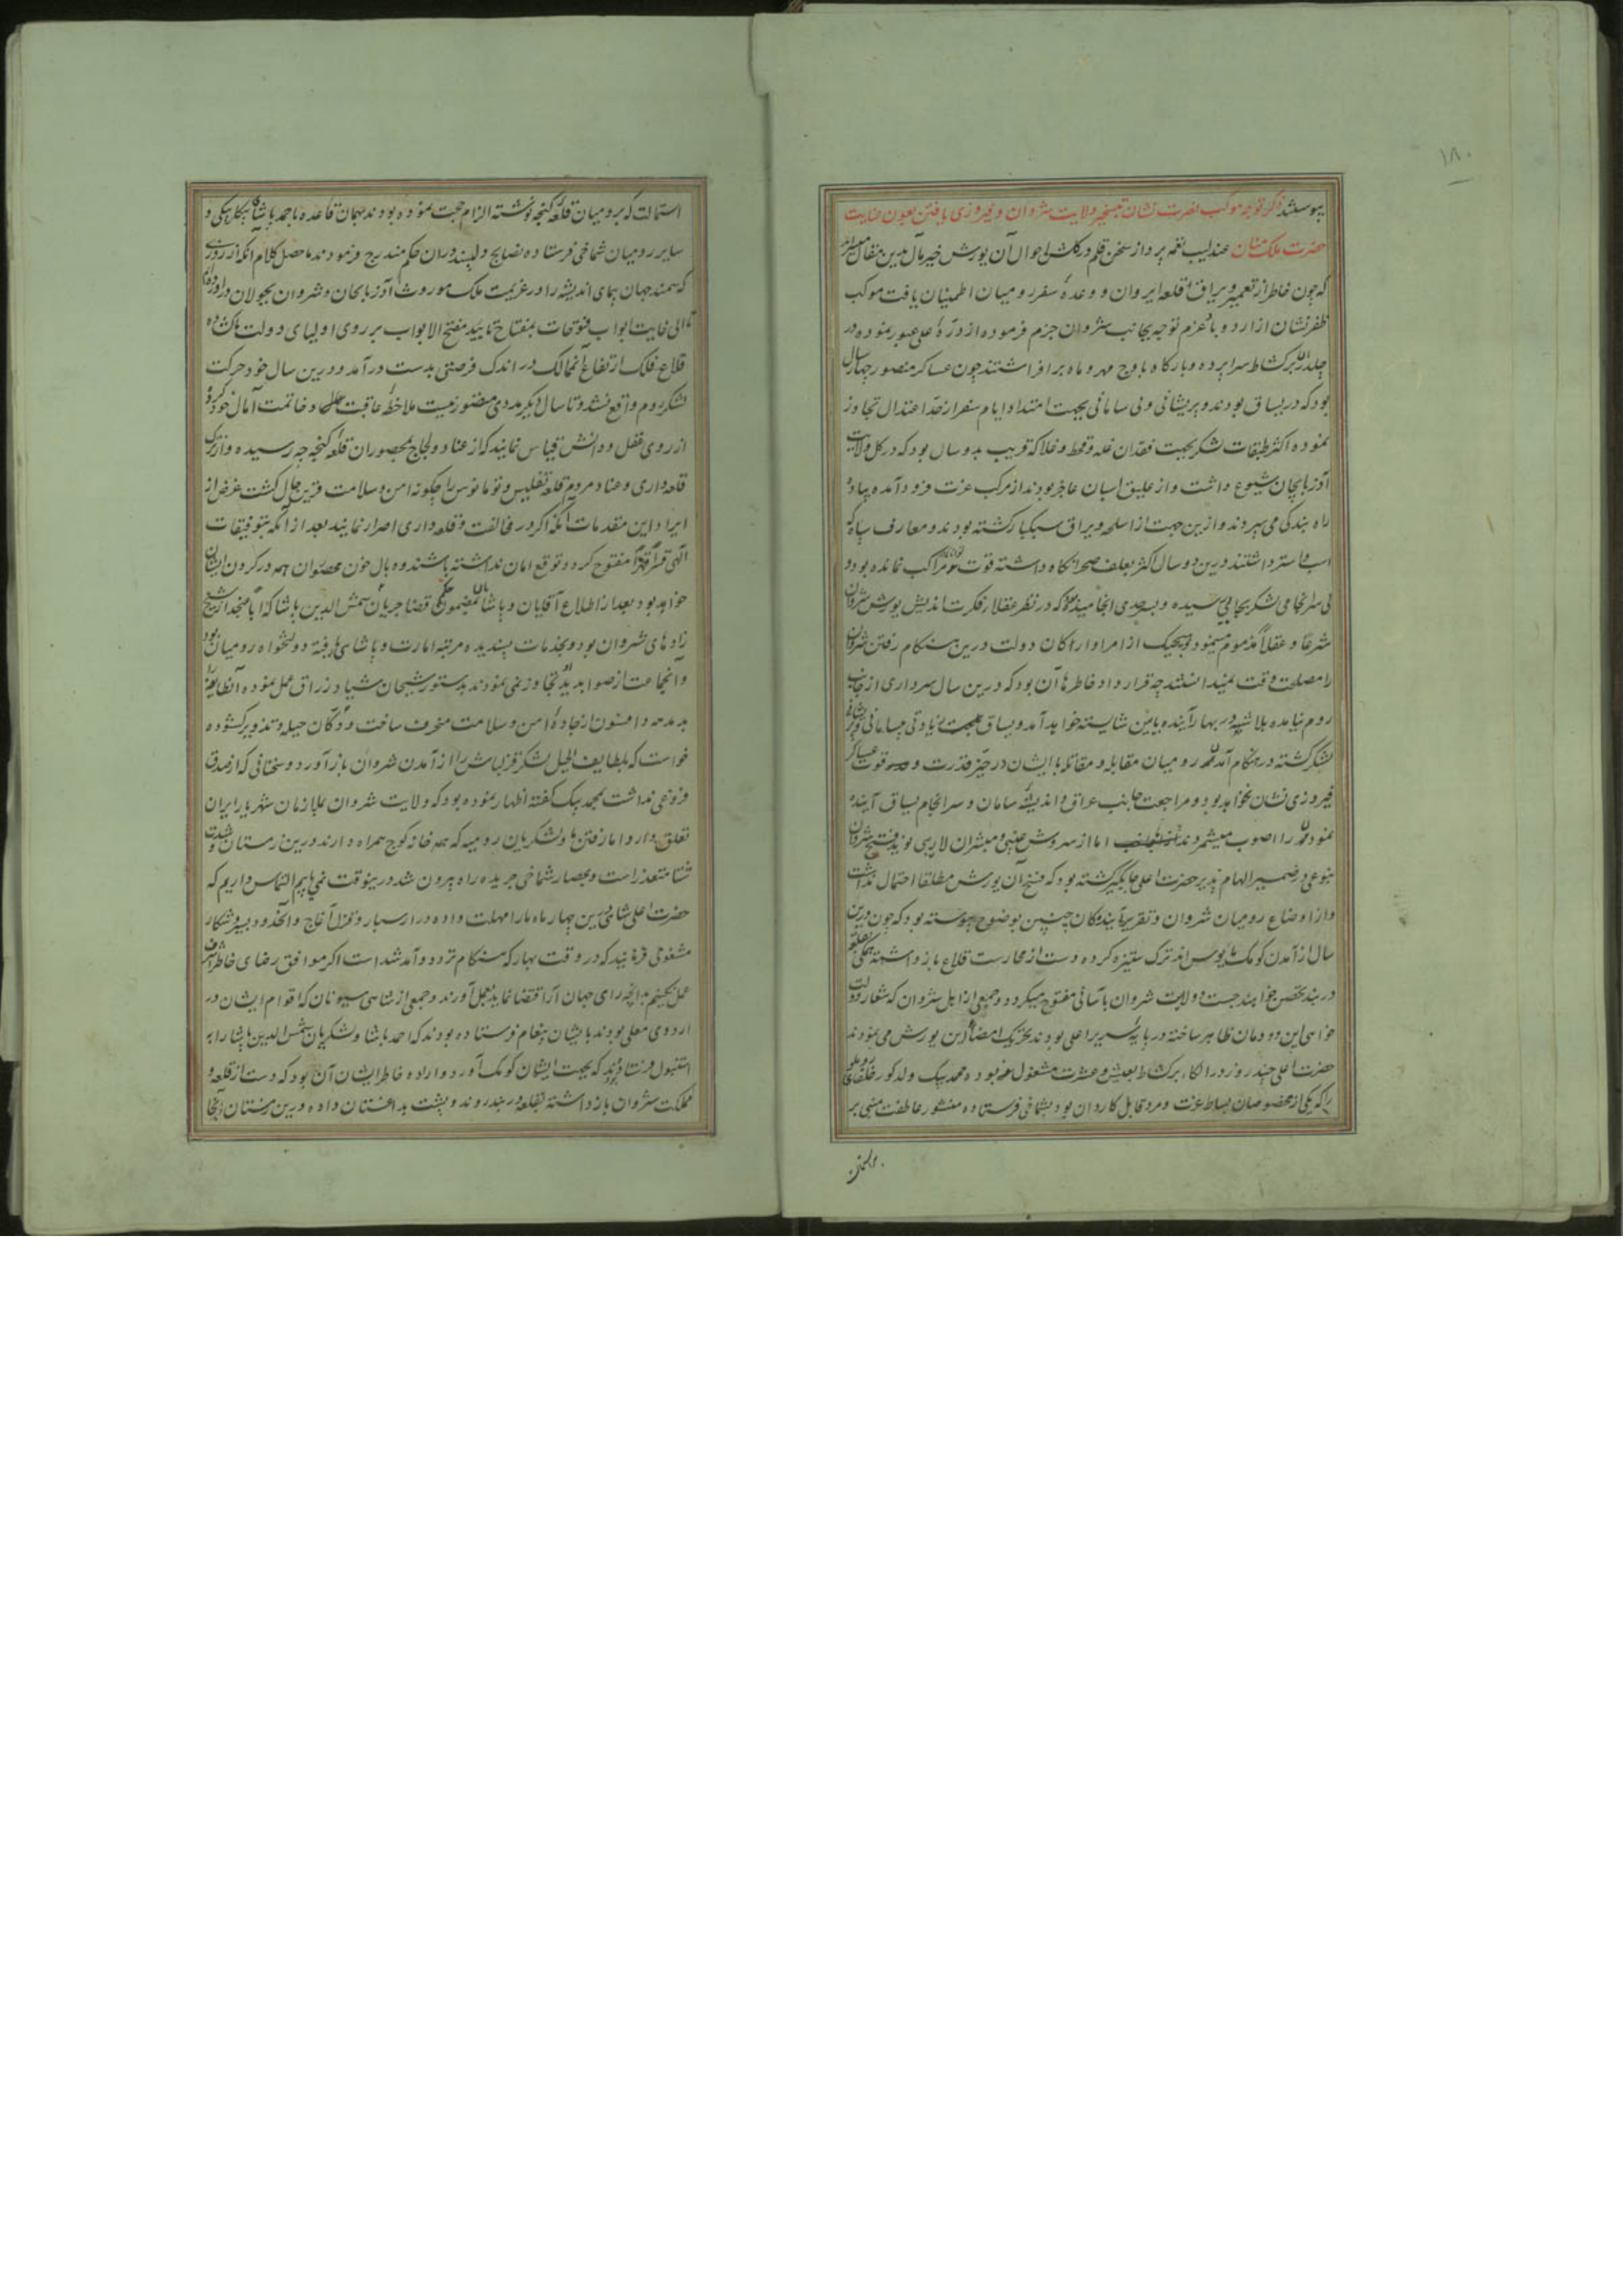 ۱۸۰
پیوستند ذکر توجه موکب نصرت نشان بتسخیر ولایت شروان و فیروزی یافتن بعون عنایت
حضرت ملک منان عندلیب نغمه پرداز سخن قلم در گلشن احوال آن یورش خیر مآل بدین مقال مترنم
که چون خاطر از تعمیر و یراق قلعه ایروان و وعده سفر رومیان اطمینان یافت موکب
ظفر نشان از اردوباد عزم توجه بجانب شروان جزم فرموده از دره علی عبور نموده در
برکشاط سراپرده و بارگاه باوج مهر و ماه برافراشتند چون عساکر منصور چهار سال
بود که در یساق بودند و پریشانی و بی سامانی بجهت امتداد ایام سفر از حد اعتدال تجاوز
نموده اکثر طبقات لشکر بجهت فقدان غله و قحط و غلا که قریب بدو سال بود که در کل ولایت
آذربایجان شیوع داشت و از علیق اسبان عاجز بودند از مرکب عزت فرود آمده پیاده
راه بندگی می سپردند و ازین جهت از اسلحه و یراق سبکبار گشته بودند و معارف سپاه که
اسب و استر داشتند درین دو سال اکثر بعلف صحرا نگاه داشته قوت در مراکب نمانده بود و
بی سرانجامی لشکر بجائی رسیده و بحدی انجامیده بود که در نظر عقلا و فکرت اندیش یورش شروان
شرعا و عقلا مذموم مینمود و هیچیک از امرا و ارکان دولت درین هنگام رفتن شروان
را مصلحت وقت نمیدانستند چه قرارداد خاطرها آن بود که درین سال سرداری از جانب
روم نیامده بلا شبهه در بهار آینده بآیین شایسته خواهد آمد و یساق بجهت زیادتی بیسامانی و پریشانی
لشکر گشته در هنگام آمدن رومیان مقابله و مقاتله با ایشان در حیز قدرت و قوت عساکر
فیروزی نشان نخواهد بود و مراجعت بجانب عراق و اندیشه سامان و سرانجام یساق آینده
نمودن را اصوب میشمردند اما از سروش غیبی و مبشران لاریبی نوید فتح شروان
بنوعی در ضمیر الهام پذیر حضرت اعلی جایگیر گشته بود که فسخ آن یورش مطلقا احتمال نداشت
و از اوضاع رومیان شروان و تقریر آیندگان چنین بوضوح پیوسته بود که چون درین
سال از آمدن کومک مأیوس اند ترک ستیزه کرده دست از محارست قلاع باز داشته همگی بقلعه
دربند تحصن خواهند جست و ولایت شروان بآسانی مفتوح میگردد و جمعی از ایل شروان که شعار دولت
خواهی این دودمان ظاهر ساخته در پایه سریر اعلی بودند تحریک امضای این یورش می نمودند
حضرت اعلی چند روز در الکاء برکشاط بعیش و عشرت مشغول بوده محمد بیک ولد کور خلفای روملو
را که یکی از مخصوصان بساط عزت و مرد قابل کاردان بود بشماخی فرستاده منشور عاطفت مبنی بر
استمالت که برومیان قلعه گنجه نوشته الزام حجت نموده بودند بهمان قاعده باحمد پاشای بیگلربیگی و
سایر رومیان شماخی فرستاده نصایح دلپسند در آن حکم مندرج فرمودند ماحصل کلام آنکه از روزی
که سمند جهان پیمای اندیشه را در عزیمت ملک موروث آذربایجان و شروان بجولان درآورده‌ایم
الی غایت ابواب فتوحات بمفتاح تأیید مفتح الابواب بر روی اولیای دولت ما گشاده
قلاع فلک ارتفاع آن ممالک در اندک فرصتی بدست درآمد و درین سال خود حرکت
لشکر روم واقع نشد و تا سال دیگر مددی متصور نیست ملاحظه عاقبت و خاتمت آمال خود کرده
از روی عقل و دانش قیاس نمایند که از عناد و لجاج بمحصوران قلعه گنجه چه رسیده و از ترک
قلعه داری و عناد مردم قلعه تفلیس و تومانوس را چگونه امن و سلامت قرین حال گشت غرض از
ایراد این مقدمات آنکه اگر در مخالفت و قلعه داری اصرار نمایند بعد از آنکه بتوفیقات
الهی قسرا قهرا مفتوح گردد توقع امان نداشته باشند و وبال خون محصوران همه در گردن ایشان
خواهد بود بعد از اطلاع آقایان و پاشایان بمضمون حکم قضا جریان شمس الدین پاشا که از شیخ
زادهای شروان بود و بخدمات پسندیده مرتبه امارت و پاشائی یافته دولتخواه رومیان بود
و آنجماعت از صوابدید او تجاوز نمی نمودند بدستور شیخان شیاد زراق عمل نموده آنطایفه را
بدمدمه و افسون از جاده امن و سلامت منحرف ساخت و دکان حیله و تزویر گشوده
خواست که بلطایف الحیل لشکر قزلباش را از آمدن شروان باز آورد و سخنانی که از صدق
فروغی نداشت بمحمد بیک گفته اظهار نموده بود که ولایت شروان بملازمان شهریار ایران
تعلق دارد اما رفتن ما و لشکریان رومیه که همه خانه کوچ همراه دارند درین زمستان و شدت
شتا متعذر است و بحصار شماخی جریده راه بیرون شد درینوقت نمی یابیم التماس داریم که
حضرت اعلی شاهی درین چهار ماه ما را مهلت داده در ارسبار و قزل آغاج و آنحدود بسیر و شکار
مشغولی فرمایند که در وقت بهار که هنگام تردد و آمد شد است اگر موافق رضای خاطر اشرف
عمل نکنیم بدانچه رای جهان آرا اقتضا نماید بعمل آورند و جمعی از شاهی سیونان که اقوام ایشان در
اردوی معلی بودند بایشان پیغام فرستاده بودند که احمد پاشا و لشکریان شمس الدین پاشا را به
استنبول فرستاده بودند که بجهت ایشان کومک آورد و اراده خاطر ایشان آن بود که دست از قلعه و
مملکت شروان باز داشته بقلعه دربند روند و پشت بداغستان داده درین زمستان آنجا